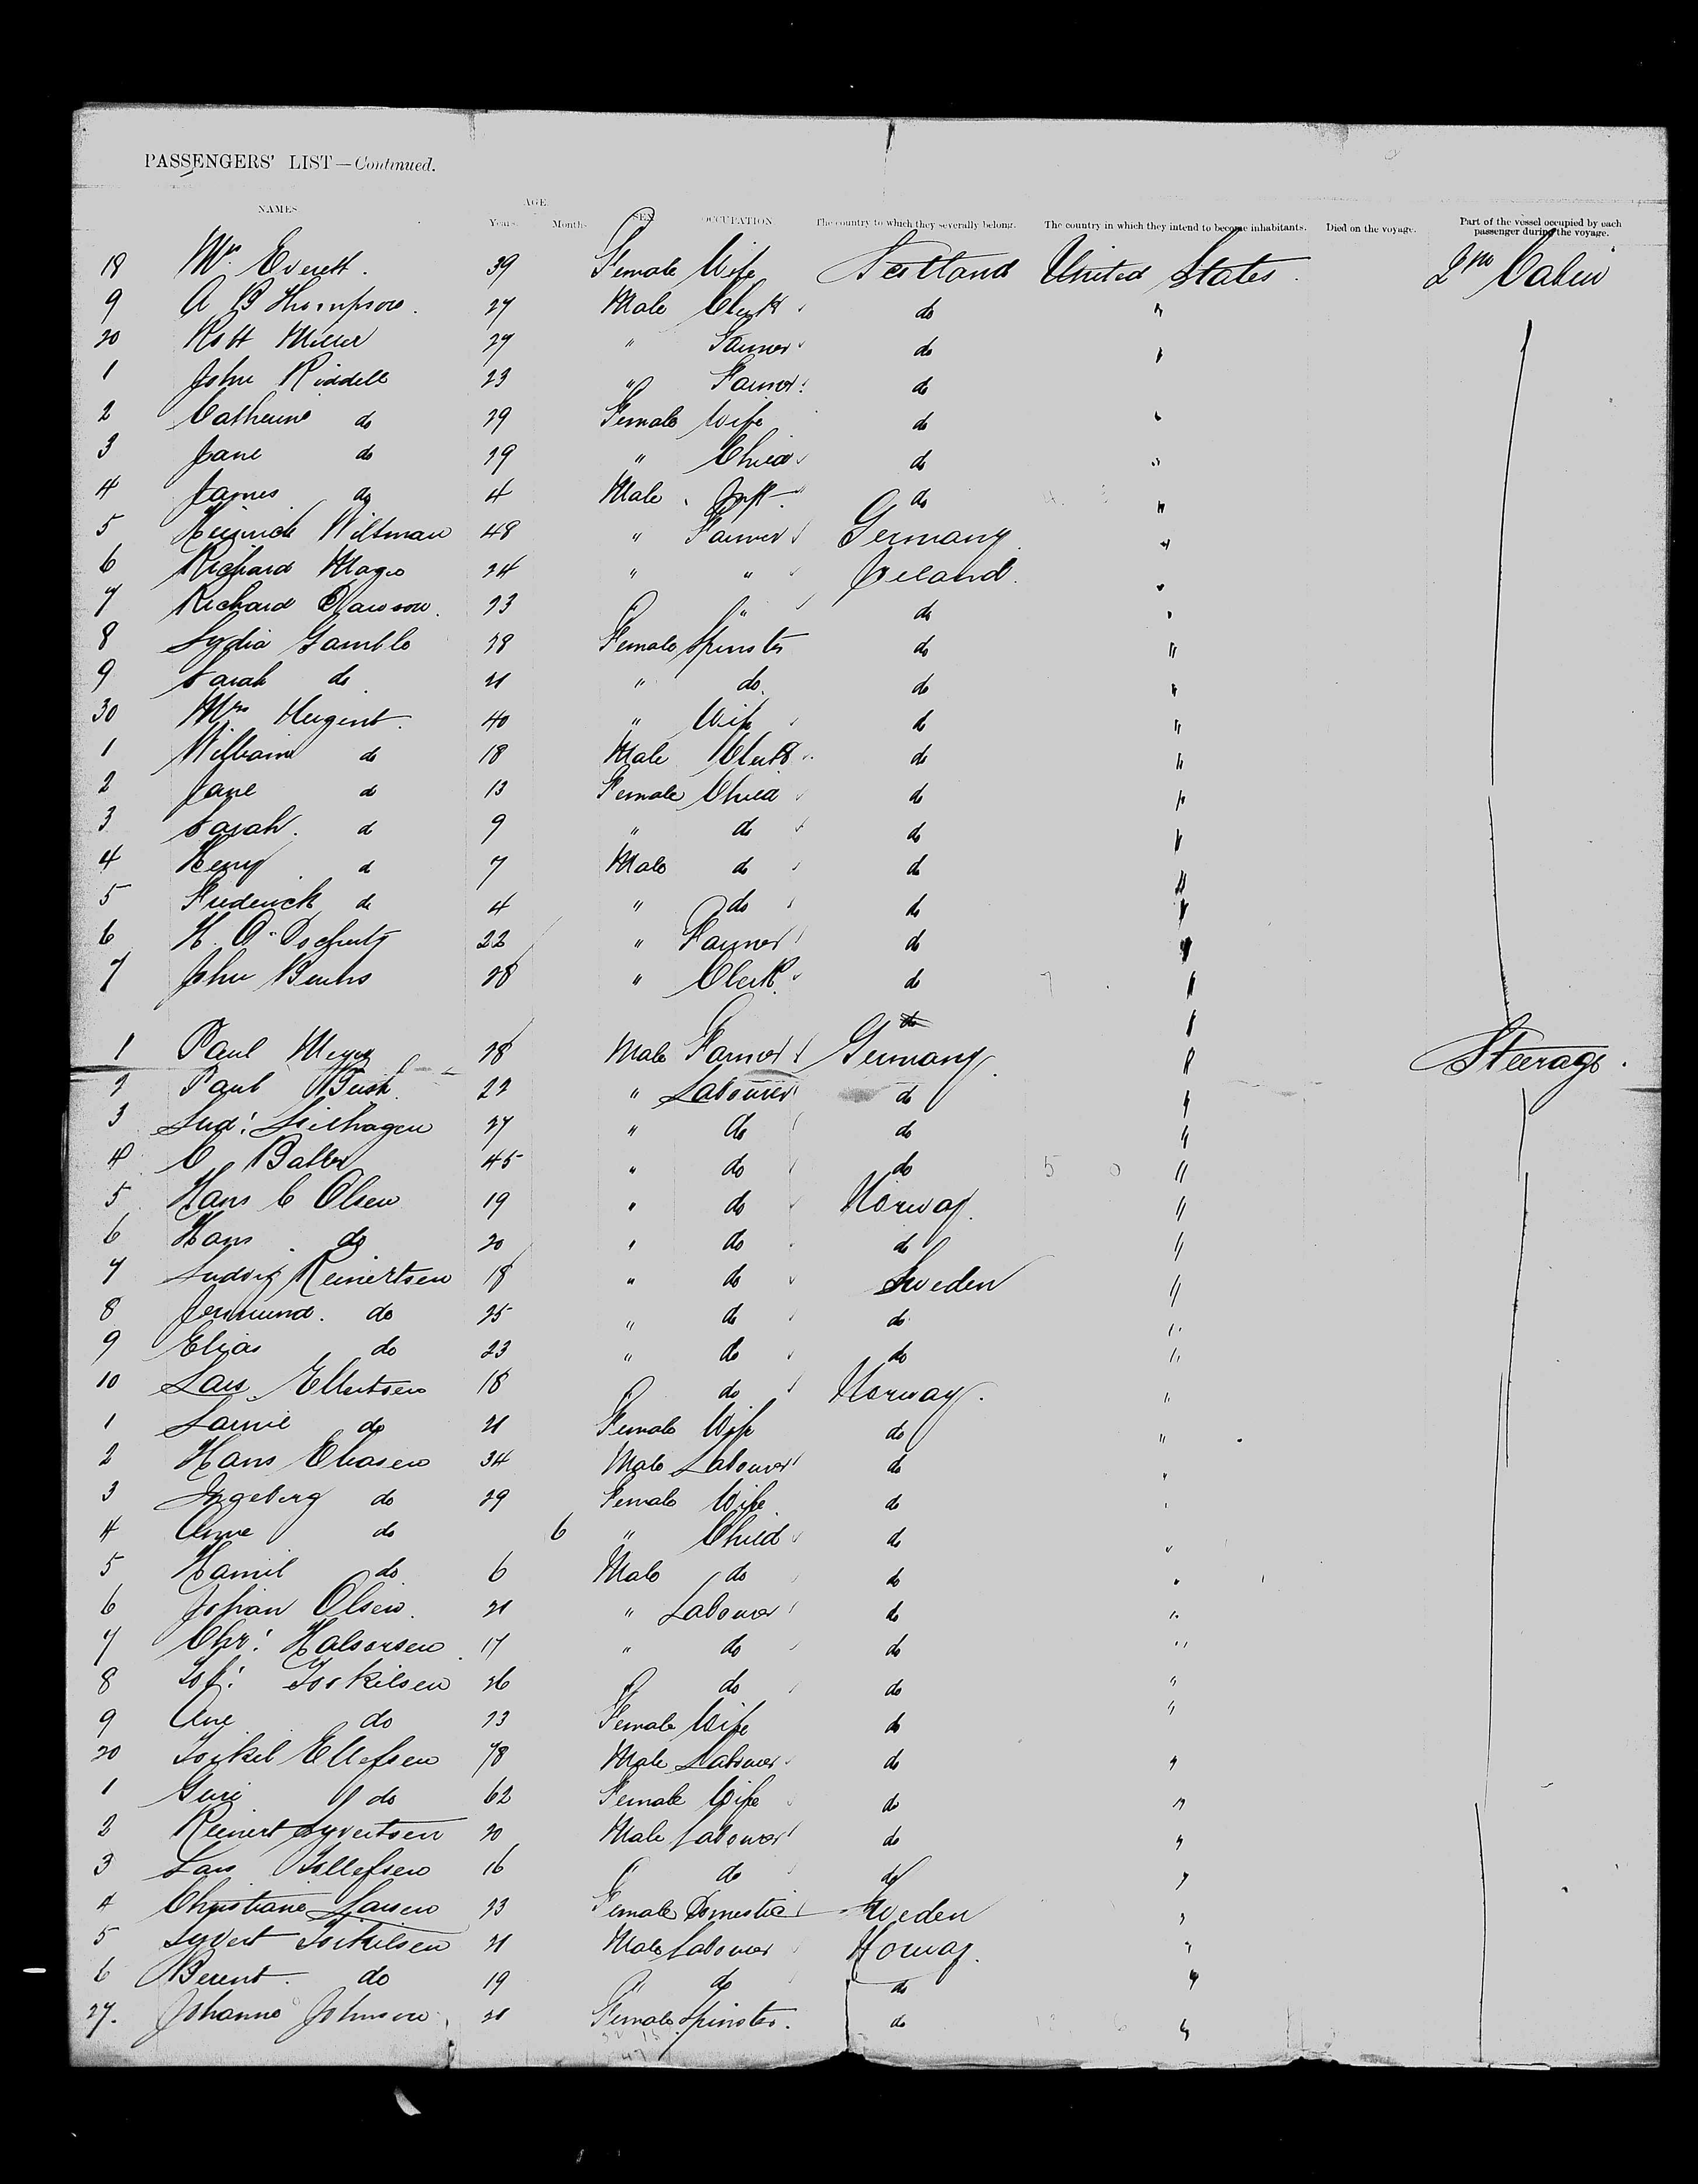 PASSENGERS' LIST—Continued.
NAMES AGE Years. Months. SEX OCCUPATION The country to which they severally belong. The country in which they intend to become inhabitants. Died on the voyage. Part of the vessel occupied by each passenger during the voyage.
18 Mrs Everett. 39 Female Wife Scotland United States. 2nd Cabin
9 A B Thompson. 27 Male Clerk do "
20 Robt Miller 27 " Farmer do "
1 John Riddell 23 " Farmer do
2 Catherine do 29 Female Wife do "
3 Jane do 19 " Child do "
4 James do 4 Male Inft do "
5 Heinrich Wiltman 48 " Farmer Germany "
6 Richard Magee 24 " " Ireland. "
7 Richard Dawson. 23 " do "
8 Lydia Gamble 28 Female Spinster do "
9 Sarah do 21 " do. do "
30 Mrs Nugent. 40 " Wife do "
1 William do 18 Male Clerk do "
2 Jane do 13 Female Child do "
3 Sarah. do 9 " do do "
4 Henry do 7 Male do do "
5 Frederick do 4 " do do "
6 H. O'Docherty 22 " Farmer do "
7 John Burns 28 " Clerk do "
do "
1 Paul Meyer 28 Male Farmer Germany. " Steerage.
2 Paul 22 " Labourer do "
3 Lud: 27 " do do "
4 C 45 " do do "
5 Hans C Olsen 19 " do Norway. "
6 Hans do 20 " do do "
7 Ludvig Reinertsen 18 " do Sweden "
8 do 25 " do do "
9 Elias do 23 " do do "
10 Lars Ellertsen 18 do Norway. "
1 do 21 Female Wife do "
2 Hans Eliasen 34 Male Labourer do "
3 Ingeborg do 29 Female Wife do "
4 Anne do 6 " Child do "
5 Hamil do 6 Male do do "
6 Johan Olsen. 21 " Labourer do "
7 Chr: Halvorsen 17 " do do "
8 Torkilsen 26 do do "
9 Ane do 23 Female Wife do "
20 Torkel Ellefsen 78 Male Labourer do "
1 Guri do 62 Female Wife do "
2 Reinert Syvertsen 20 Male Labourer do "
3 Lars Tollefsen 16 " do do "
4 Christiane Larsen 23 Female Domestic Sweden "
5 Syvert Torkilsen 21 Male Labourer Norway. "
6 Berent. do 19 " do do "
27. Johanne Johnsen 21 Female Spinster. do "